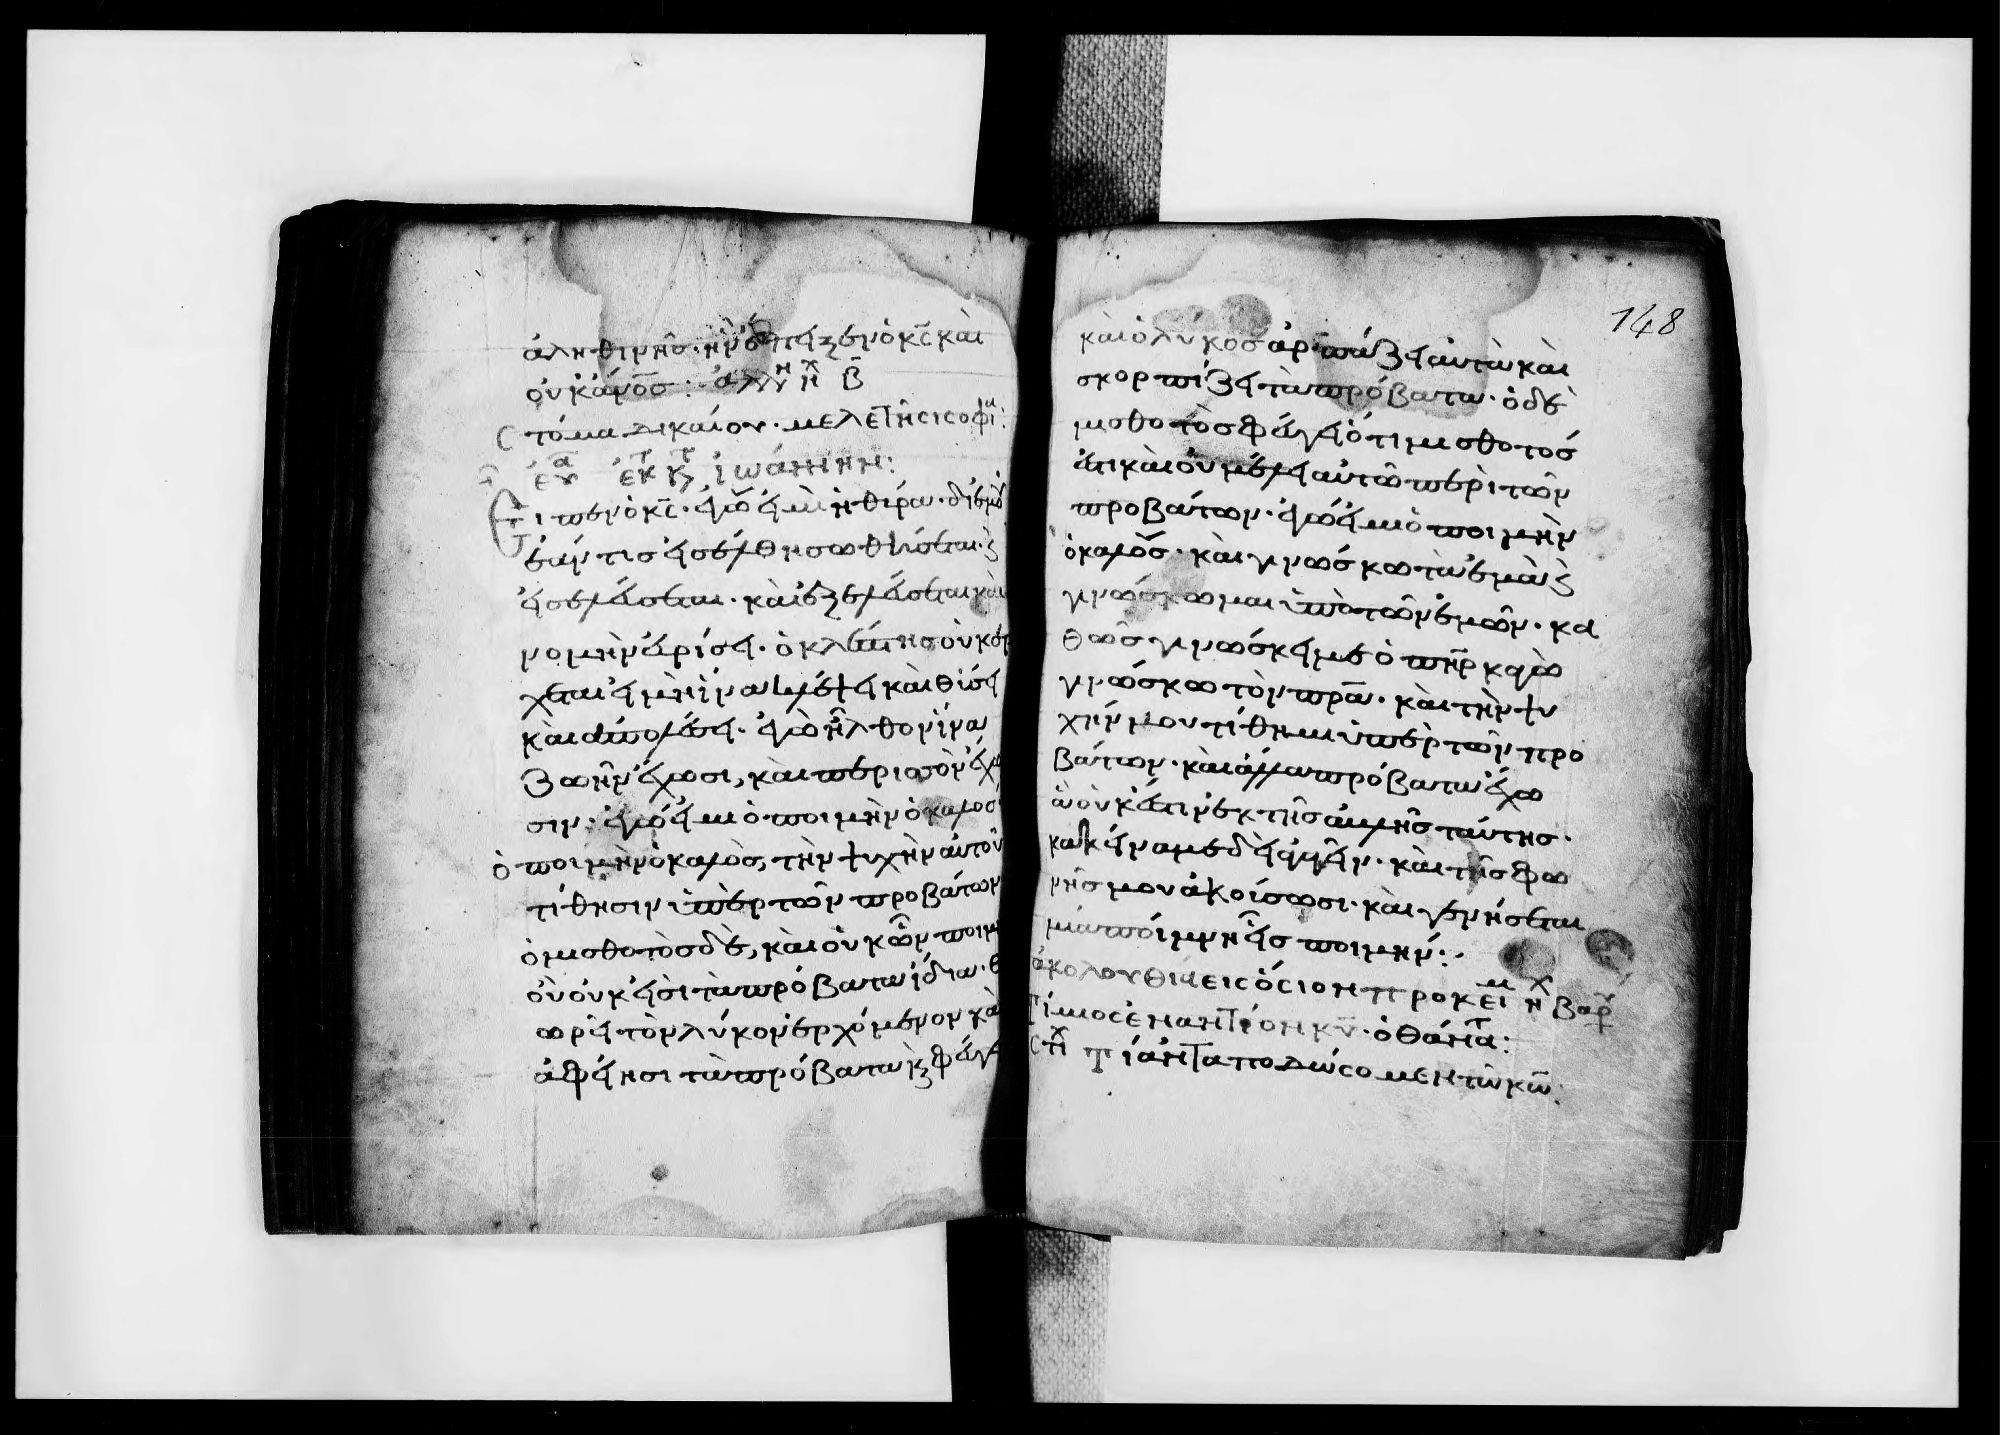 ἀληθινῆς· ἣν ἔπηξεν ὁ κ̅ς̅ καὶ
οὐκ ἄνο̅ς̅: ἀλλη ἦχ β̅
Στόμα δικαίου· μελετῆσι σοφι:
ἐυα ἐκ τ κτ ἰωάννην:
Εἶπεν ὁ κ̅ς̅· ἐγώ εἰμι ἡ θύρα· δι' ἐμοῦ
ἐάν τις εἰσέλθη σωθήσεται· κ
εἰσελεύσεται· καὶ ἐξελεύσεται καὶ
νομὴν εὑρίσει· ὁ κλέπτης οὐκ ἔρ
χεται εἰ μὴ ἵνα κλέψει καὶ θύσει
καὶ ἀπολέσει· ἐγὼ ἦλθον ἵνα
ζωὴν ἔχωσι, καὶ περισσὸν ἔχω
σιν· ἐγώ εἰμι ὁ ποιμὴν ὁ καλοσ
ὁ ποιμὴν ὁ καλὸς, τὴν ψυχὴν αὐτοῦ
τίθησιν ὑπὲρ τῶν προβάτων
ὁ μισθοτὸς δὲ, καὶ οὐκ ὢν ποιμ
οὗ οὐκ εἰσὶ τὰ πρόβατα ἴδια· θ
ωρεῖ τὸν λύκον ἐρχόμενον κα
ἀφείησι τὰ πρόβατα κ φεύγ
148
καὶ ὁ λύκος ἁρπάζει αὐτὰ καὶ
σκορπίζει τὰ πρόβατα· ὁ δὲ
μισθοτὸς φεύγει ὅτι μισθοτός
ἐστι καὶ οὐ μέλει αὐτῶ περὶ τῶν
προβάτων· ἐγώ εἰμι ὁ ποιμὴν
ὁ καλός· καὶ γινώσκω τὰ ἐμὰ κ
γινώσκωμαι ὑπὸ τῶν ἐμῶν· κα
θῶς γινώσκει με ὁ π̅η̅ρ̅ κἀγὼ
γινώσκω τὸν π̅ρ̅α̅· καὶ τὴν ψυ
χήν μου τίθημι ὑπὲρ τῶν προ
βάτων· καὶ ἄλλα πρόβατα ἔχω
ἃ οὐκ ἔστιν ἐκ τῆς αὐλῆς ταύτης·
κακεῖνα με δεῖ ἀγαγεῖν· καὶ τῆς φω
νῆς μου ἀκούσωσι· καὶ γενήσεται
μία ποίμνη εἷς ποιμήν:·
ἀκολουθία εἰς ὅσιον προκει μ ἦχ βαρ
Τίμιος ἐναντίον κ̅υ̅· ὁ θάνατ:
στιχ Τί ἀνταποδώσομεν τῶ κ̅ω̅: